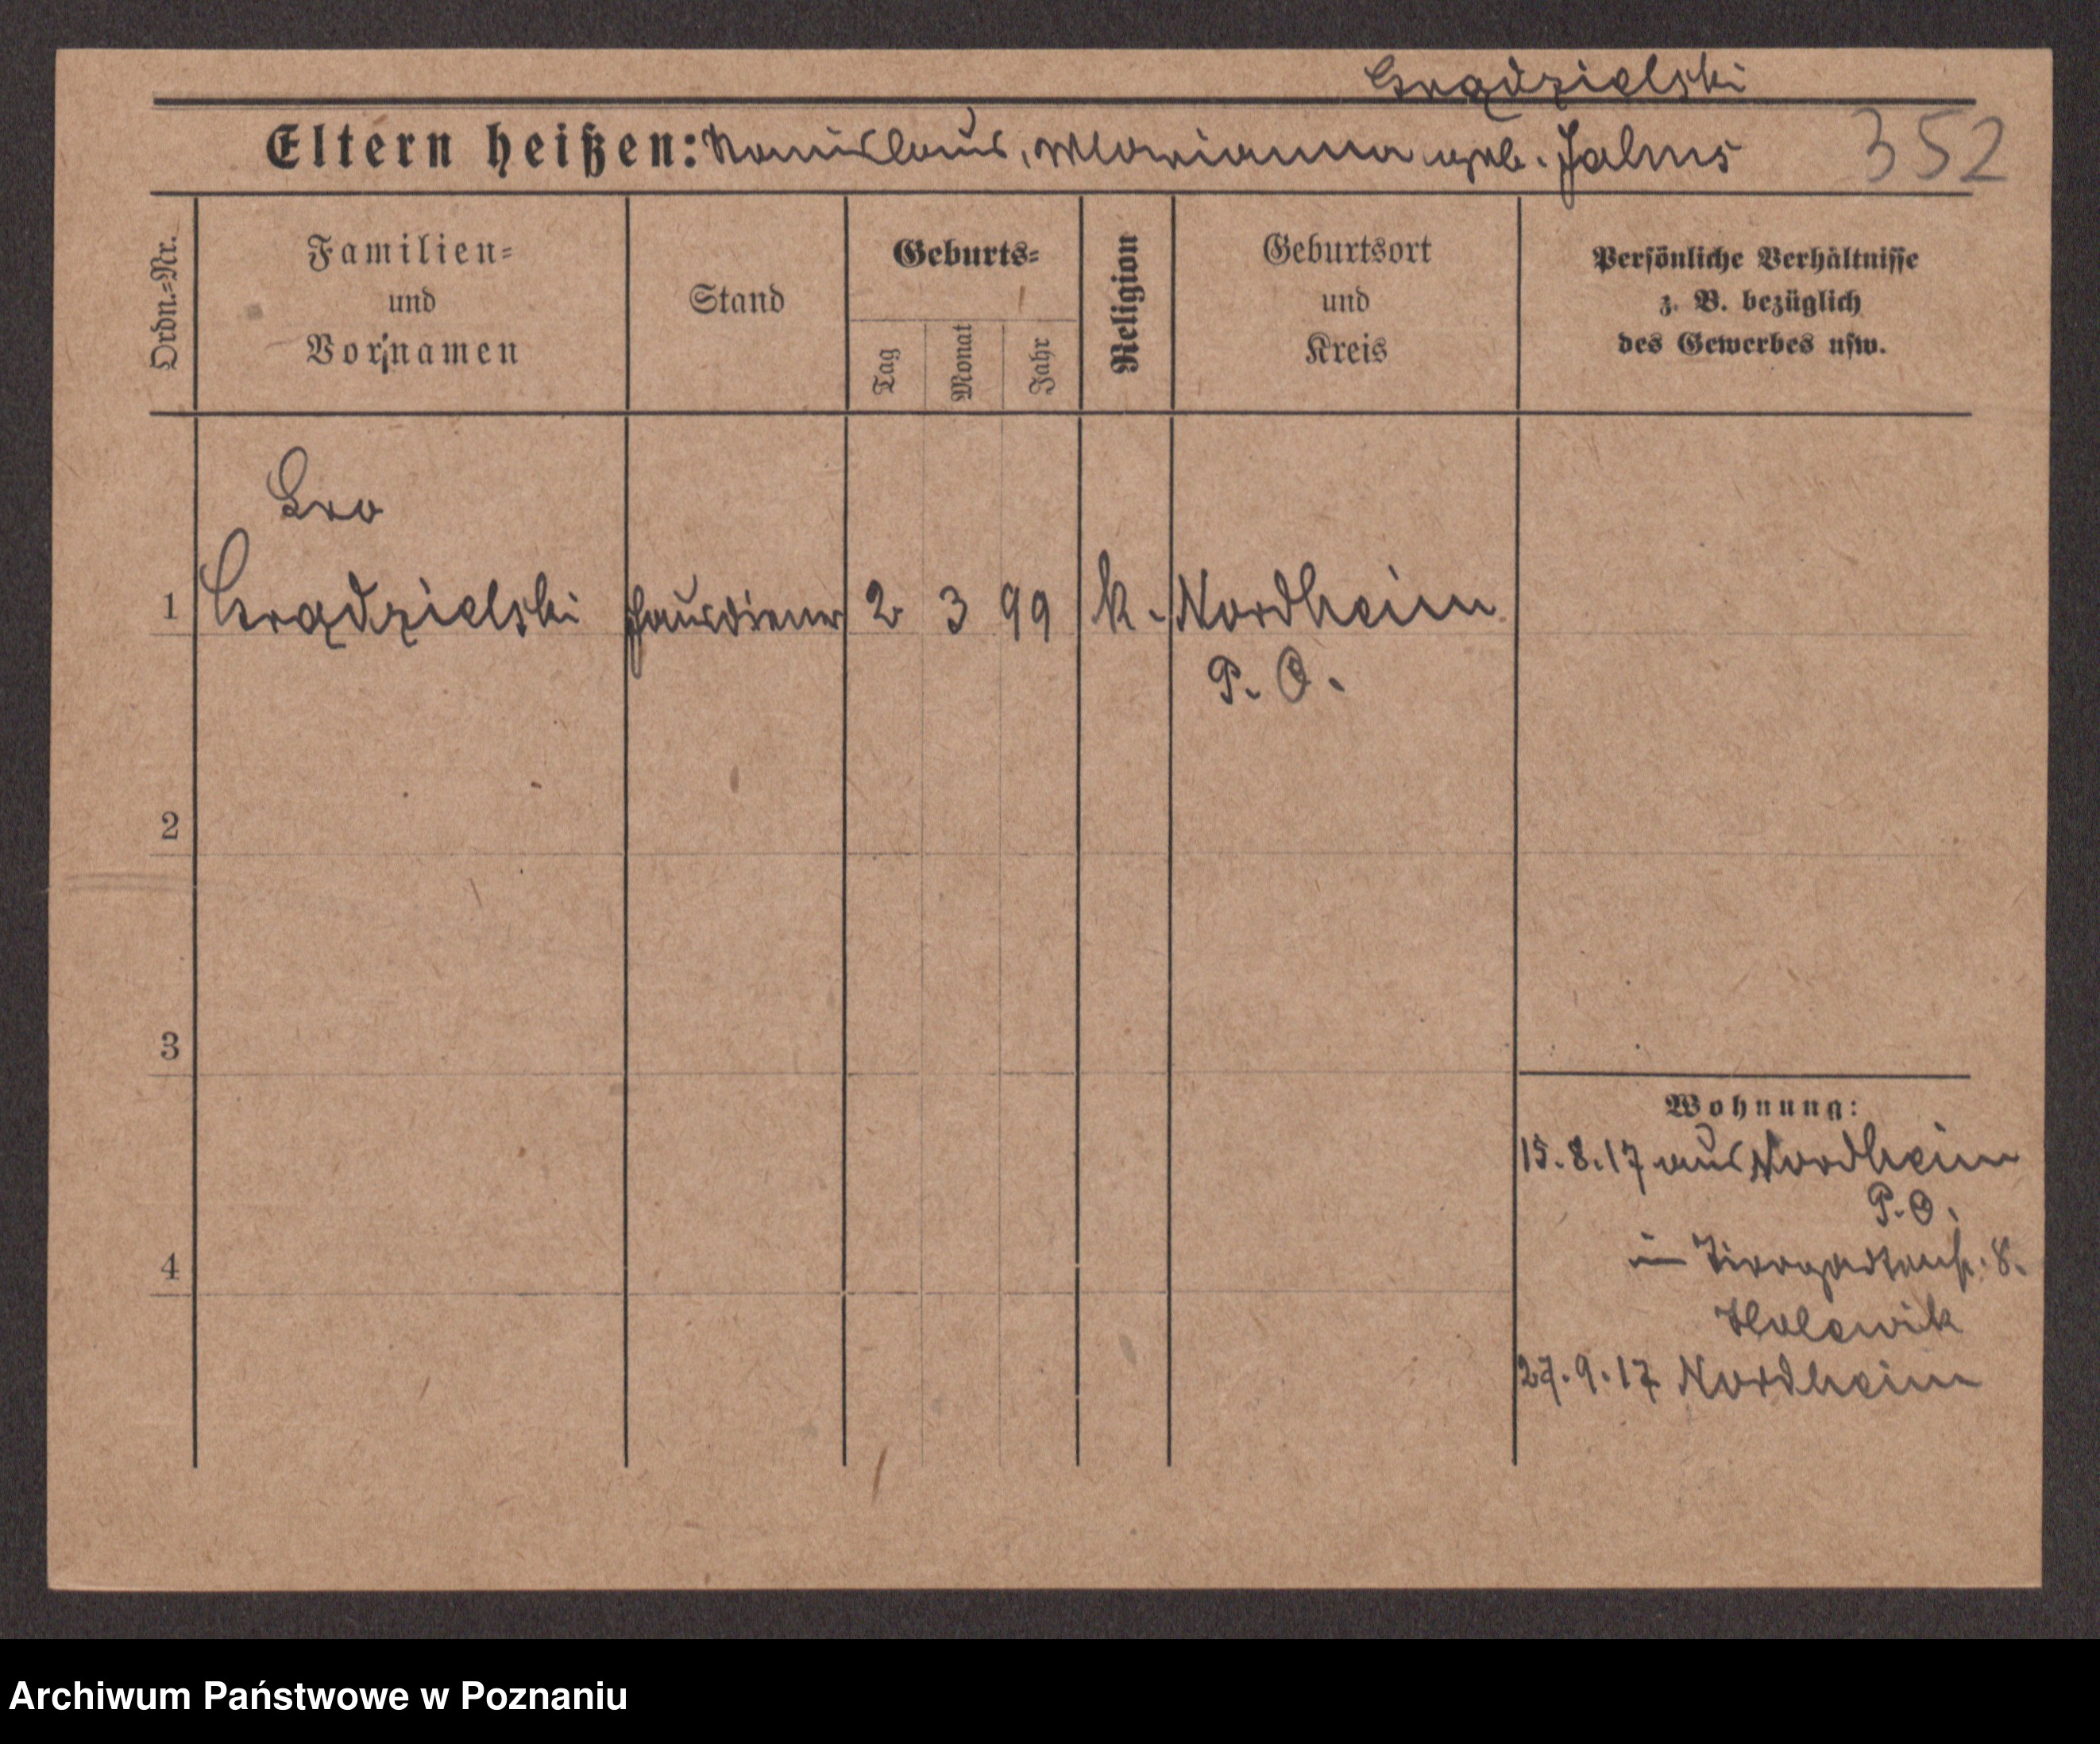 Grądzielski
Eltern heißen: Stanislaus, Marianna geb. Jahns 352
Ordn.=Nr.
Familien=
und
Vornamen
Stand
Geburts=
Tag
Monat
Jahr
Religion
Geburtsort
und
Kreis
Persönliche Verhältnisse
z. B. bezüglich
des Gewerbes usw.
Leo
1 Grądzielski Hausdiener 2 3 99 k. Nordheim
P. O.
2
3
4
Wohnung:
15.8.17 aus Nordheim
P. O.
in Tiergartenstr. 8.
27.9.17 Nordheim
Archiwum Państwowe w Poznaniu